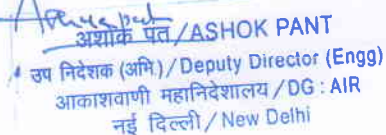 अशोक पंत / ASHOK PANT
उप निदेशक (अभि.) / Deputy Director (Engg)
आकाशवाणी महानिदेशालय / DG : AIR
नई दिल्ली / New Delhi